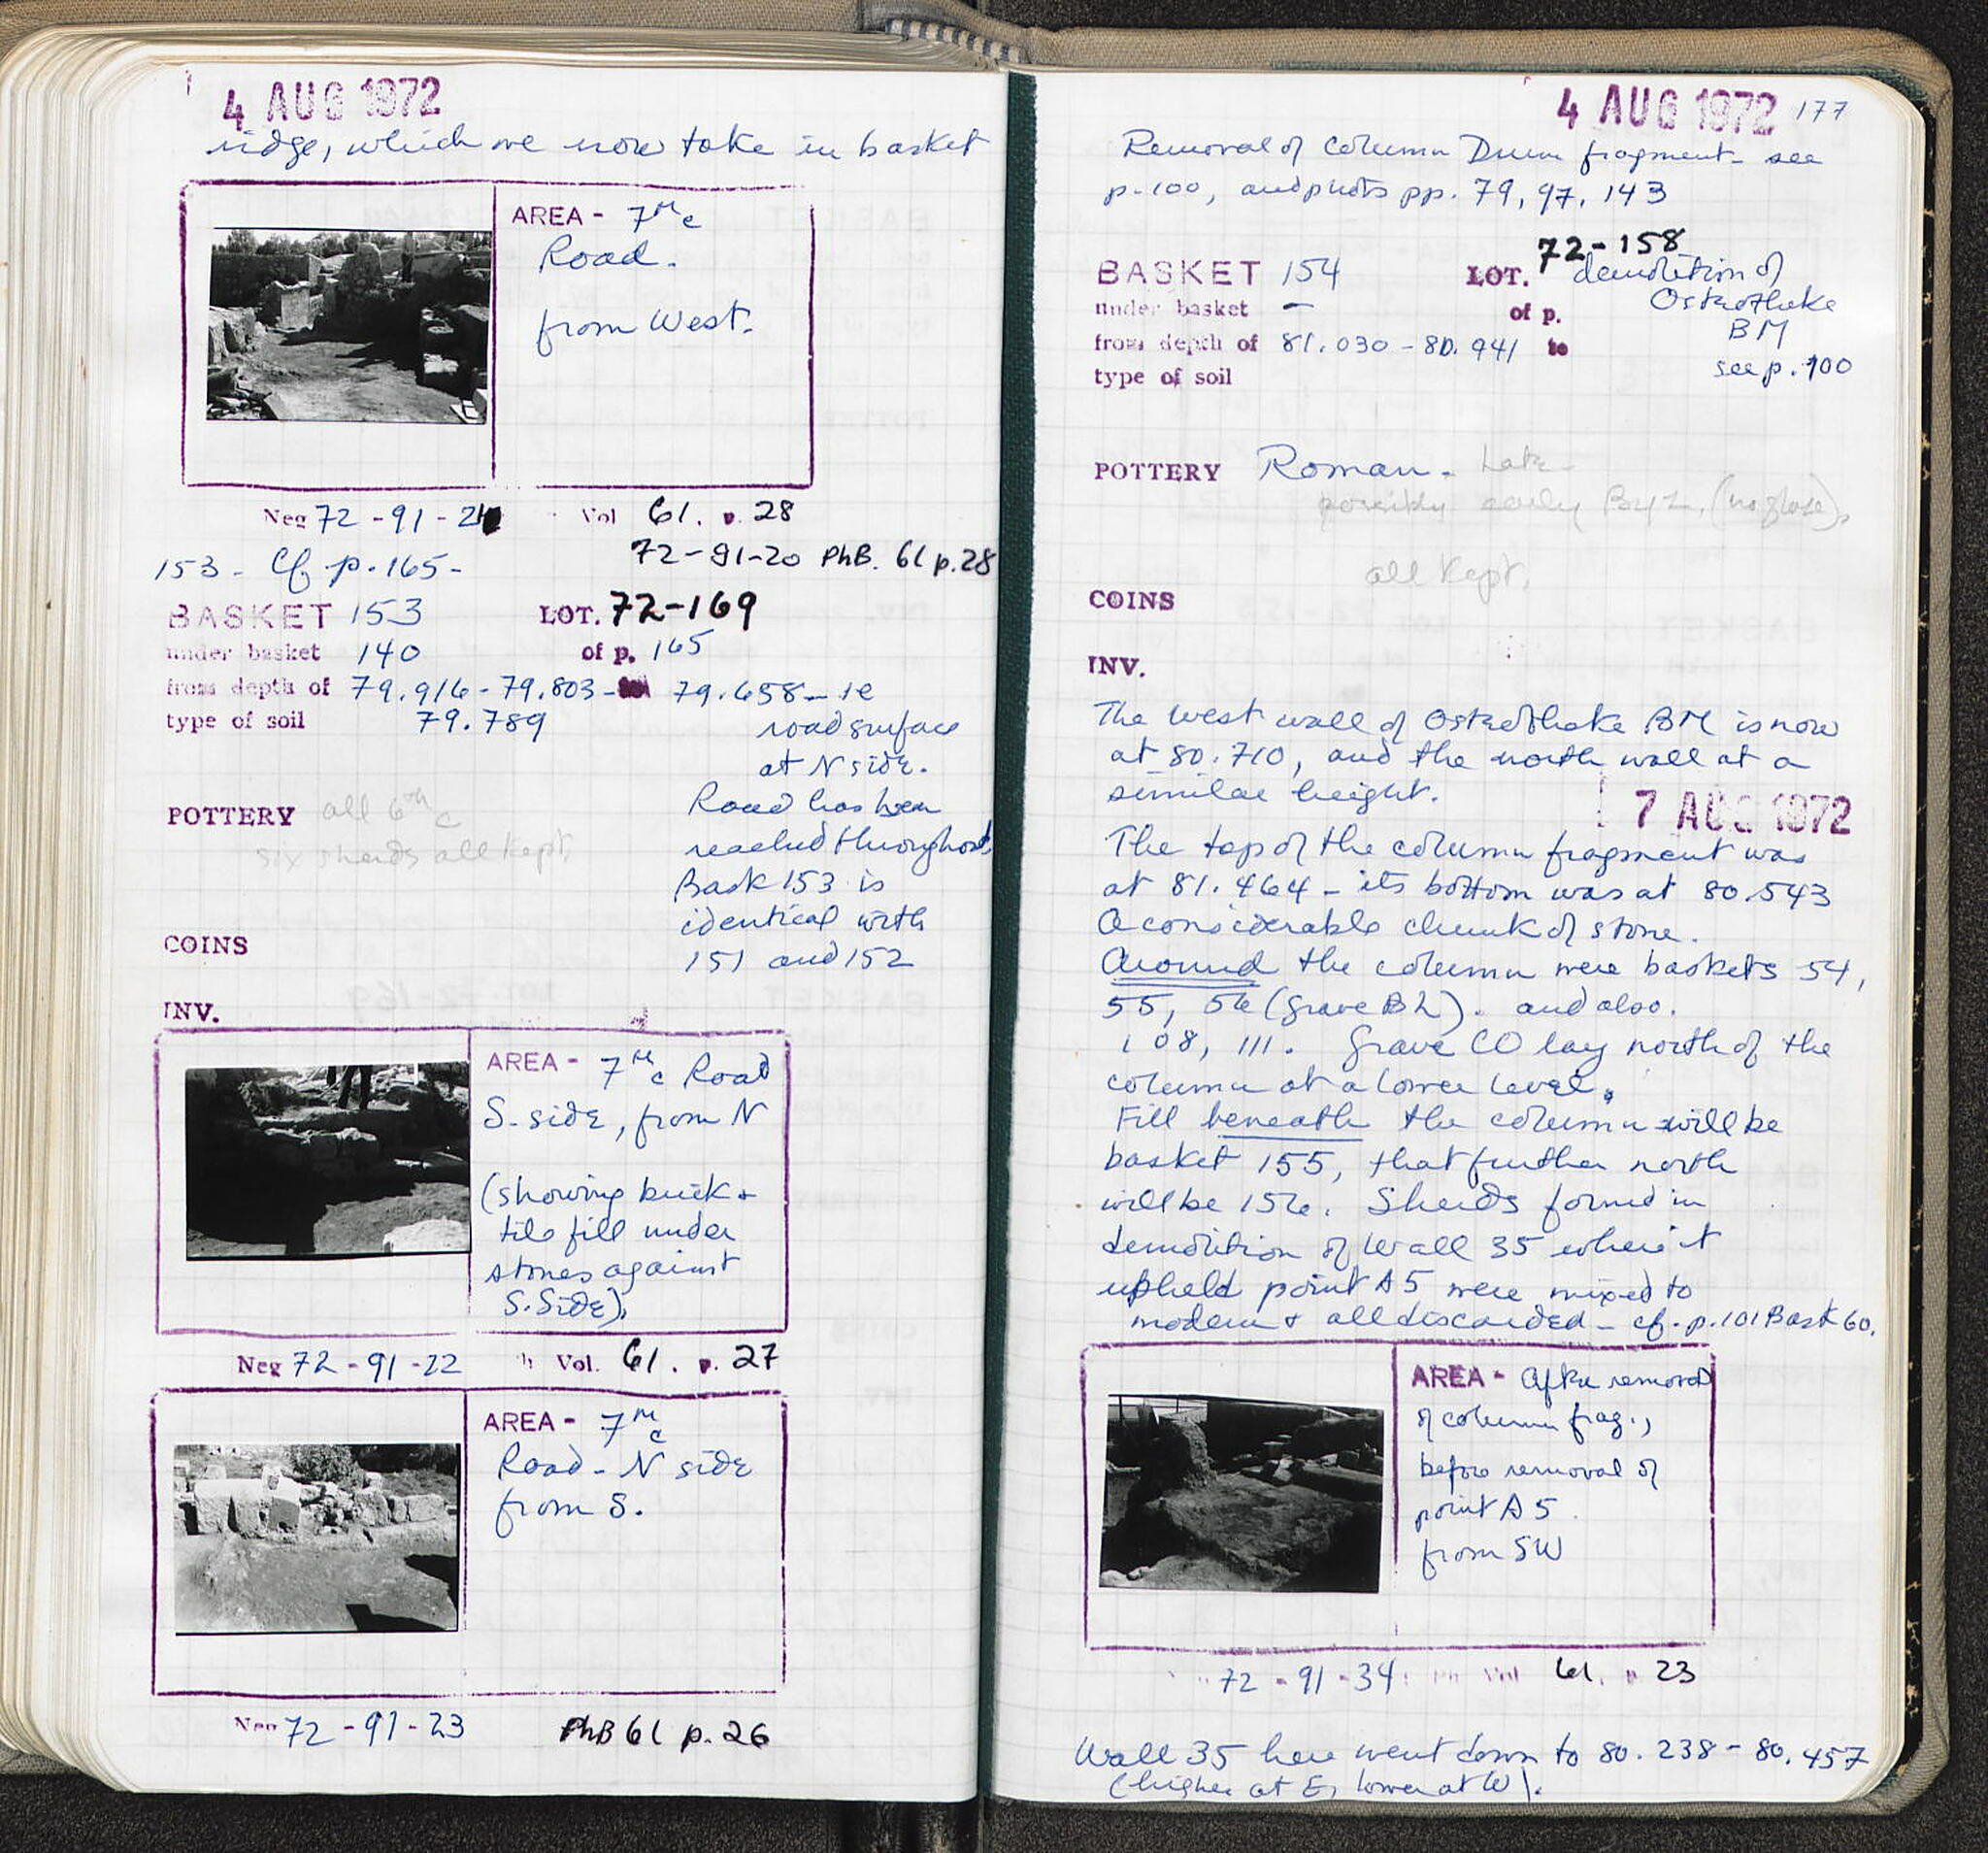 4 AUG 1972
ridge, which we now take in basket
AREA - 7th c
Road.
from West.
Neg 72 - 91 - 21 Vol 61. p. 28
72-91-20 PhB. 61 p. 28
153 - Cf. p. 165 -
BASKET 153 LOT. 72-169
under basket 140 of p. 165
from depth of 79.916 - 79.803 - 79.658 - ie
type of soil 79.789 road surface
at N side.
Road has been
POTTERY all 6th c reached throughout.
six sherds all kept. Bask 153 is
identical with
COINS 151 and 152
INV.
AREA - 7th c Road
S. side, from N
(showing brick +
tile fill under
stones against
S. Side).
Neg 72 - 91 - 22 Vol. 61. p. 27
AREA - 7th c
Road - N side
from S.
Neg 72 - 91 - 23 PhB 61 p. 26
4 AUG 1972 177
Removal of Column Drum fragment - see
p. 100, and photos pp. 79, 97, 143
BASKET 154 LOT. 72-158 demolition of
under basket - of p. Osteotheke
BM
from depth of 81.030 - 80.941 to
see p. 100
type of soil
POTTERY Roman. Late
possibly early Byz. (no glaze).
all kept.
COINS
INV.
The west wall of Osteotheke BM is now
at 80.710, and the north wall at a
similar height.
7 AUG 1972
The top of the column fragment was
at 81.464 - its bottom was at 80.543
A considerable chunk of stone.
Around the column were baskets 54,
55, 56 (grave BL). and also.
108, 111. Grave CO lay north of the
column at a lower level.
Fill beneath the column will be
basket 155, that further north
will be 156. Sherds found in
demolition of Wall 35 where it
upheld point A5 were mixed to
modern & all discarded - cf. p. 101 Bask 60.
AREA - After removal
of column frag.,
before removal of
point A 5
from SW
72 - 91 - 34 Vol 61. p. 23
Wall 35 here went down to 80.238 - 80.457
(higher at E, lower at W).